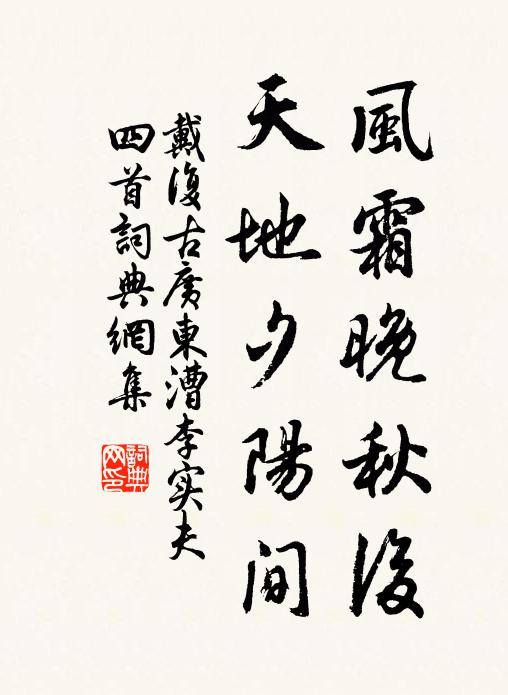 風霜晚秋後
天地夕陽間
戴復古廣東漕李实夫
四首詞典網集
詞典
网印